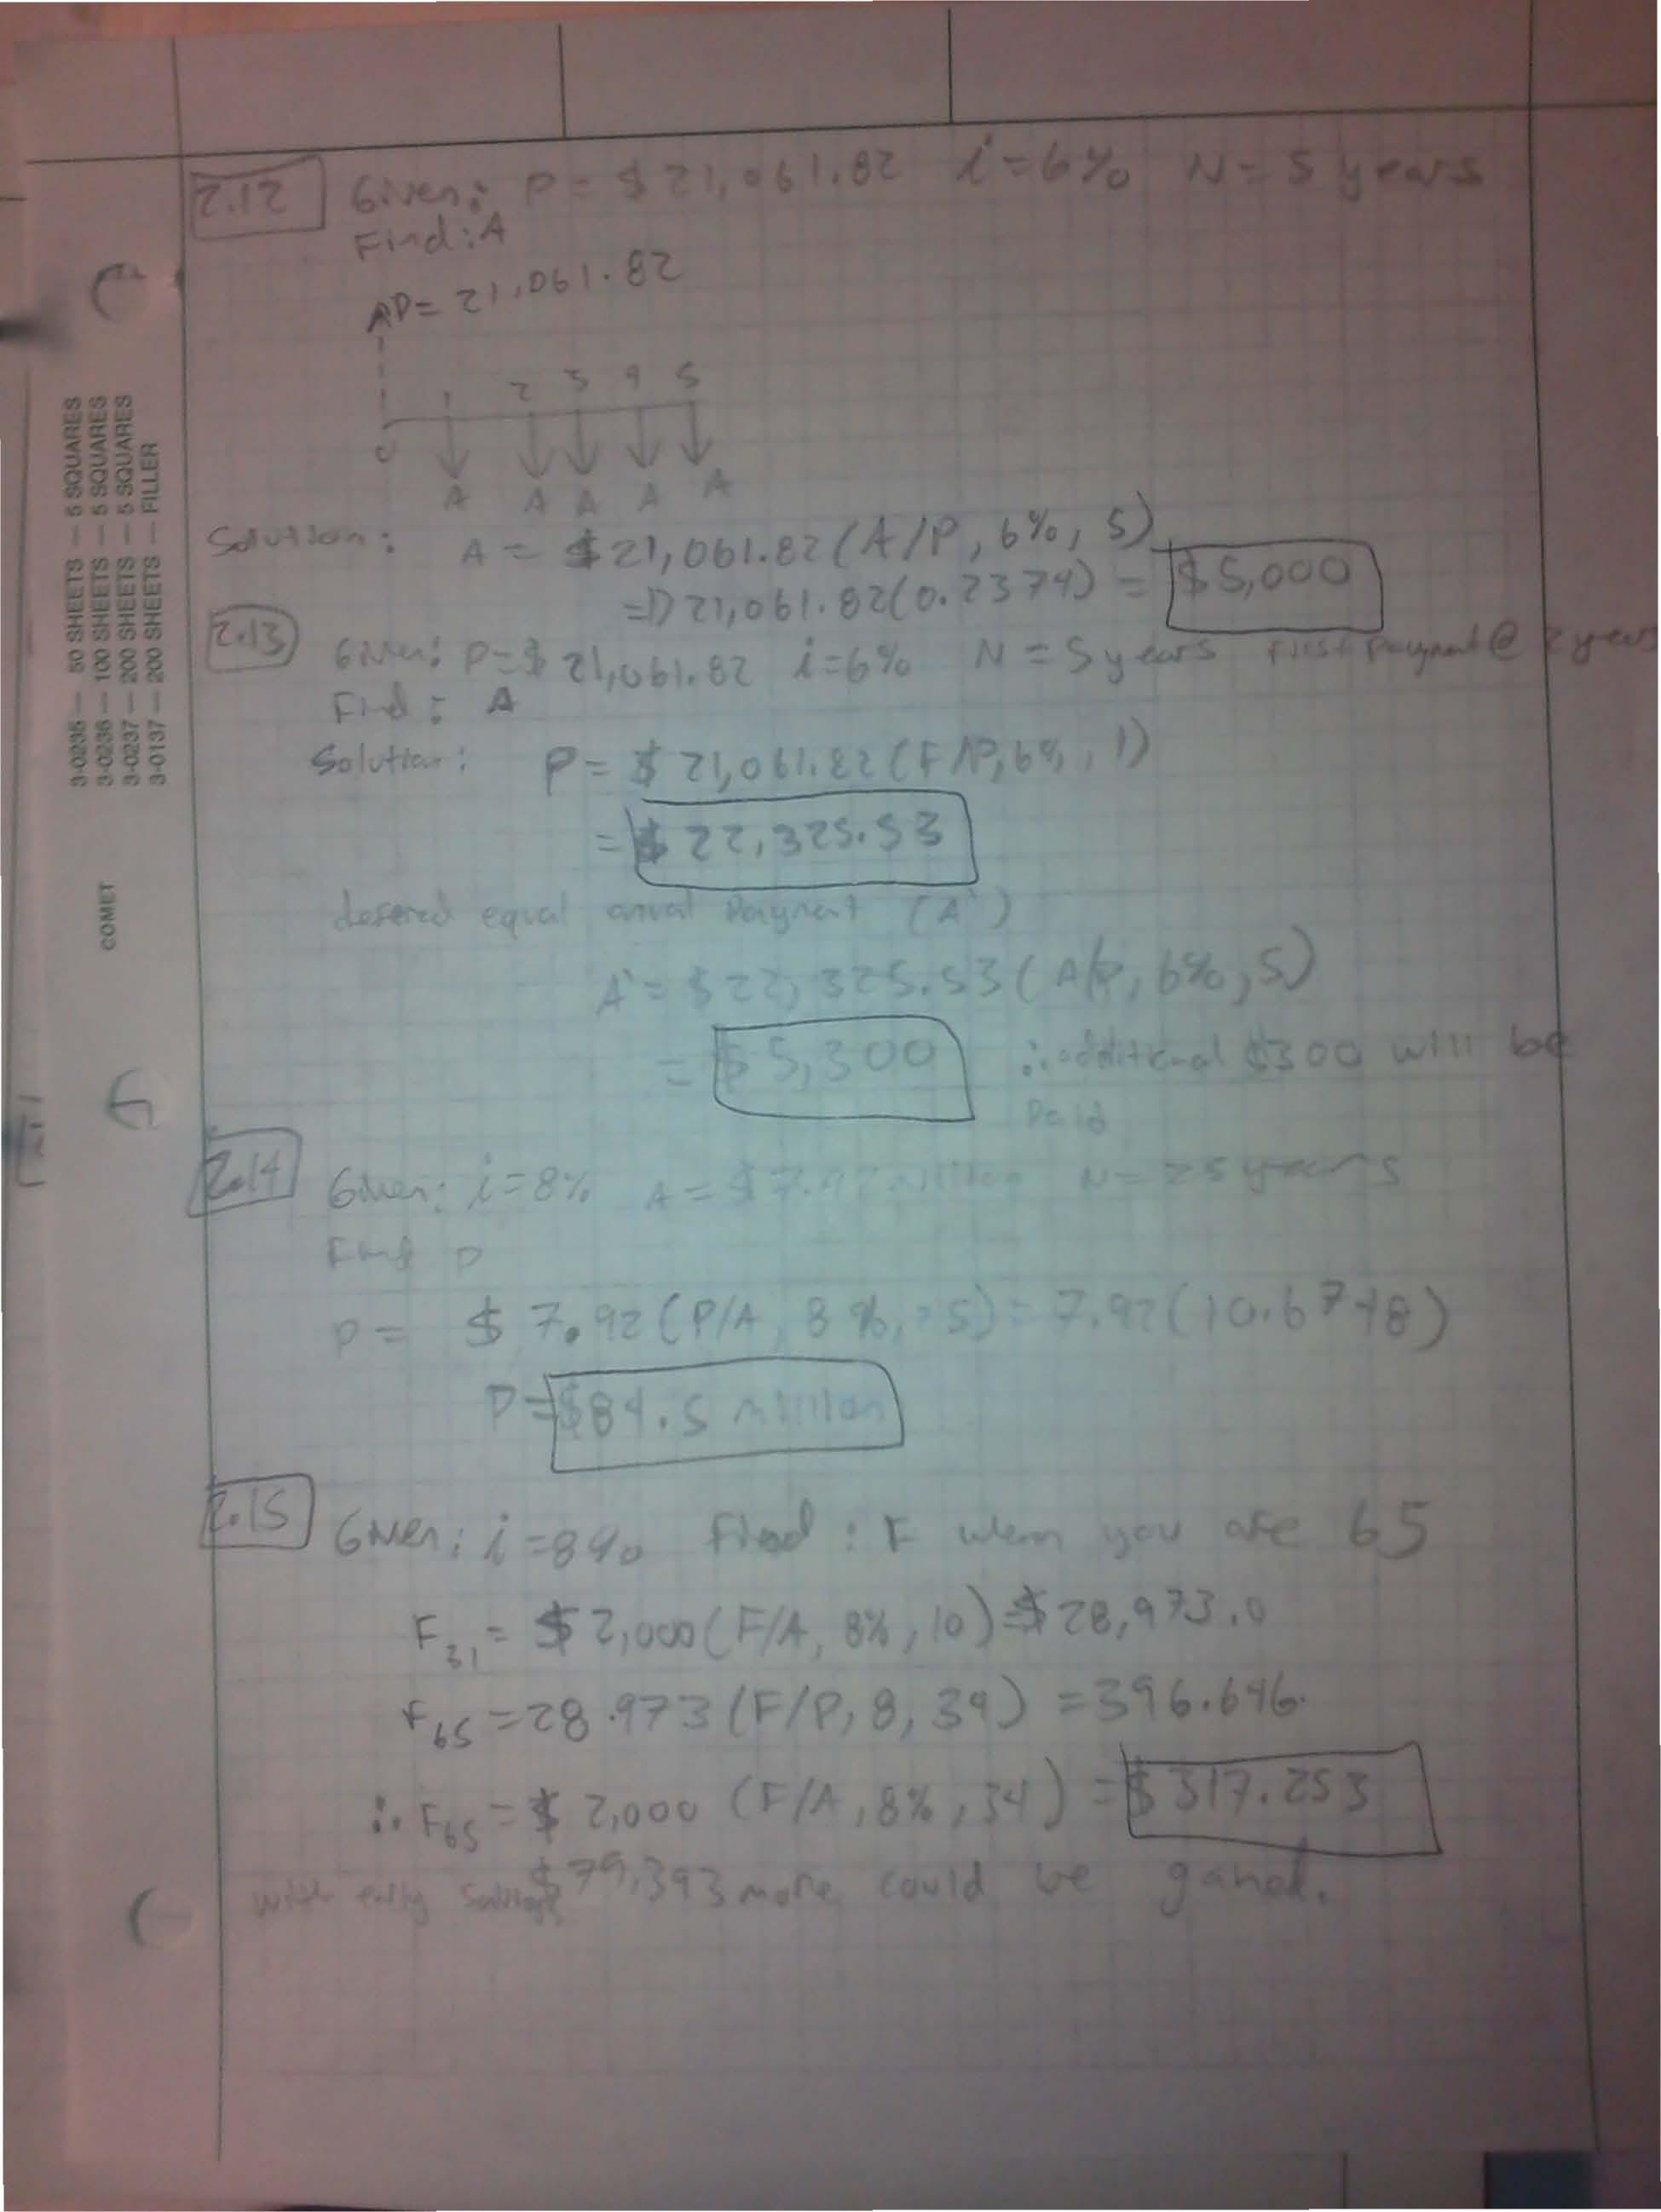 2.12 Given: P = $21,061.82 i=6% N = 5 years
Find: A
P = 21,061.82
1 2 3 4 5
0
A A A A A
Solution: A = $21,061.82 (A/P, 6%, 5)
= 21,061.82(0.2374) = $5,000
2.13 Given: P=$21,061.82 i=6% N = 5 years first payment @ 2 years
Find: A
Solution: P = $21,061.82 (F/P, 6%, 1)
= $22,325.53
defered equal anual Payment (A')
A' = $22,325.53 (A/P, 6%, 5)
= $5,300 ∴ additional $300 will be
Paid
2.14 Given: i=8% A = $7.92 million N = 25 years
Find P
P = $7.92 (P/A, 8%, 25) = 7.92(10.6748)
P = $84.5 million
2.15 Given: i=8% Find: F when you are 65
F31 = $2,000 (F/A, 8%, 10) = $28,973.0
F65 = 28.973 (F/P, 8, 34) = 396.646.
∴ F65 = $2,000 (F/A, 8%, 34) = $317.253
with early savings $79,393 more could be gained.
3-0235 — 50 SHEETS — 5 SQUARES
3-0236 — 100 SHEETS — 5 SQUARES
3-0237 — 200 SHEETS — 5 SQUARES
3-0137 — 200 SHEETS — FILLER
COMET